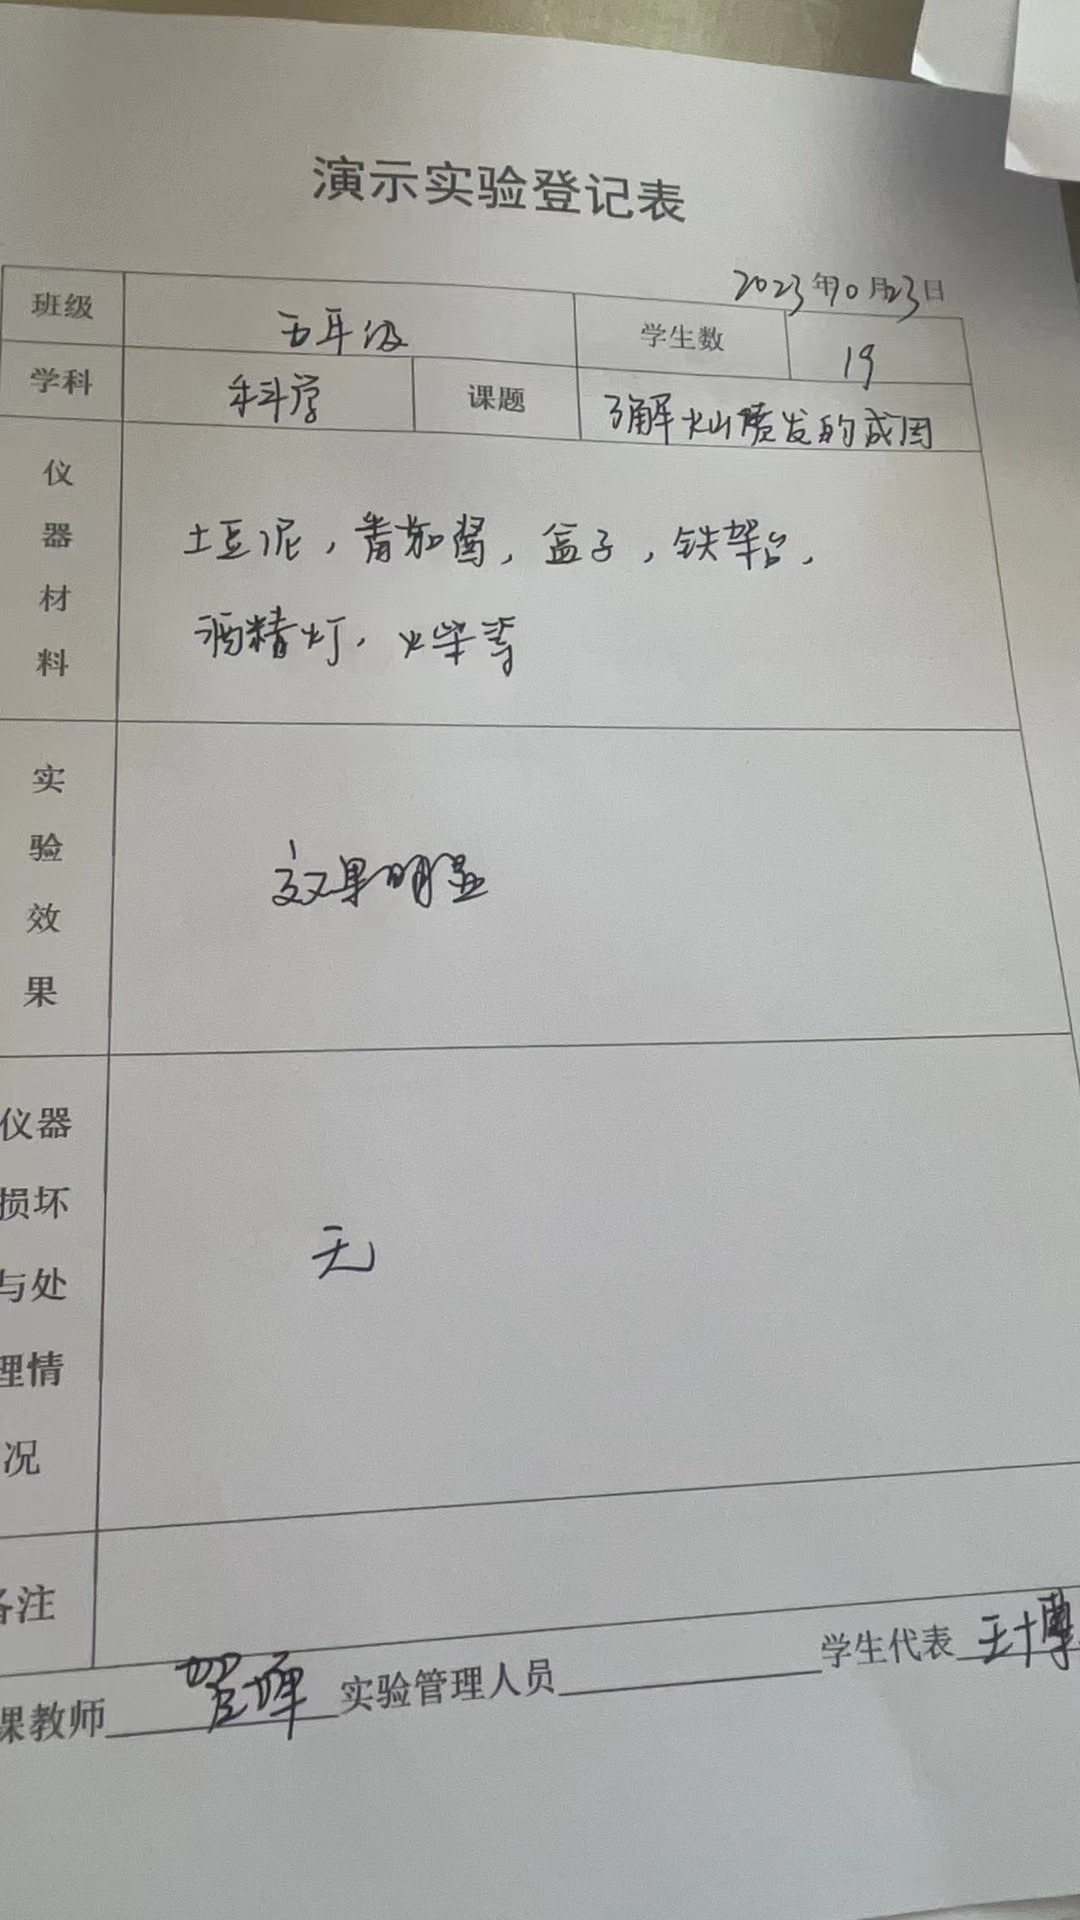 演示实验登记表
2023年10月23日
班级 五年级 学生数 19
学科 科学 课题 了解火山喷发的成因
仪器材料 土豆泥，番茄酱，盒子，铁架台，
酒精灯，火柴等
实验效果 效果明显
仪器损坏与处理情况 无
备注
课教师 实验管理人员 学生代表 王博